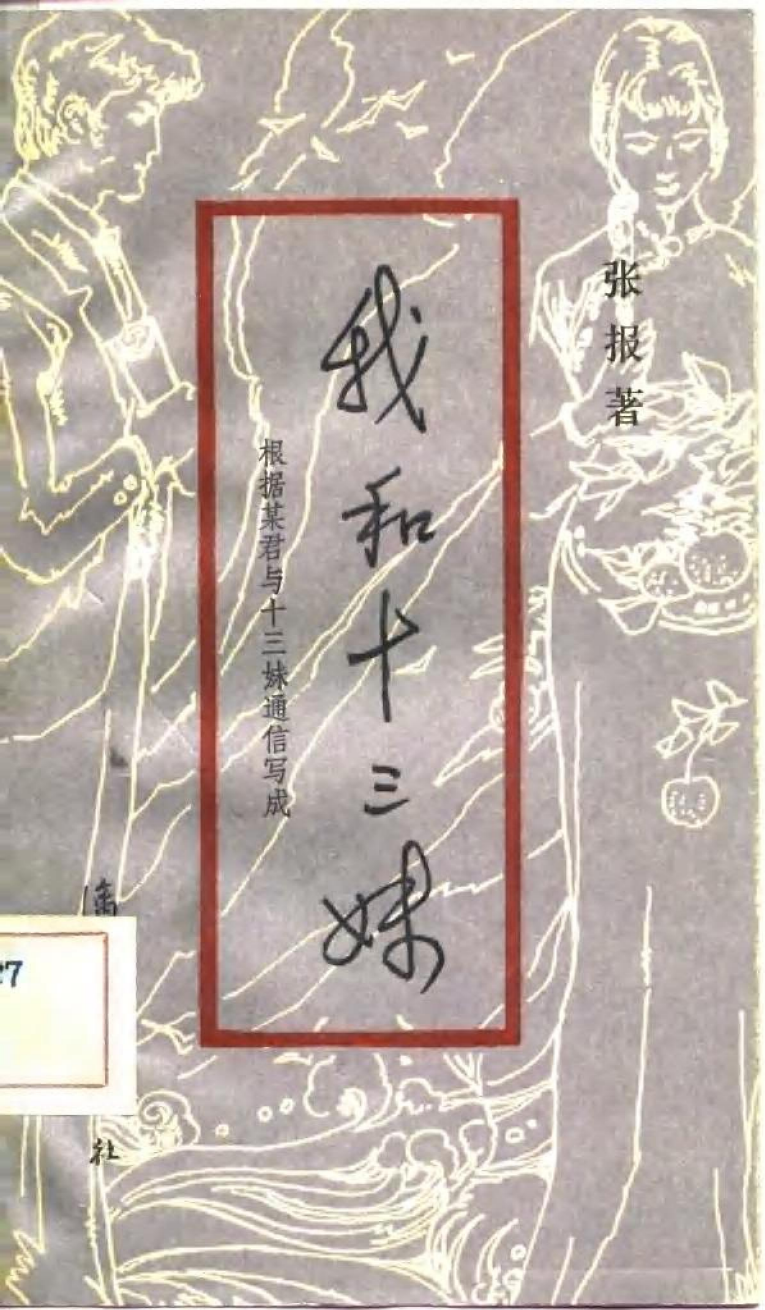 张报著
我和十三妹
根据某君与十三妹通信写成
漓
社
27